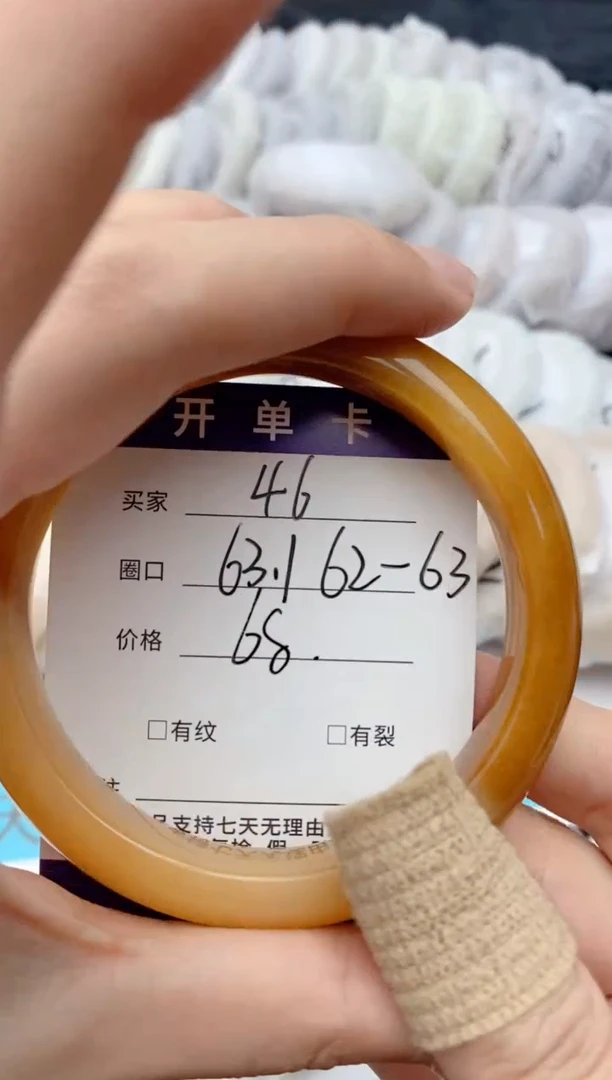 开单卡
买家 46
圈口 63.1 62-63
价格 68.
□有纹 □有裂
注
支持七天无理由